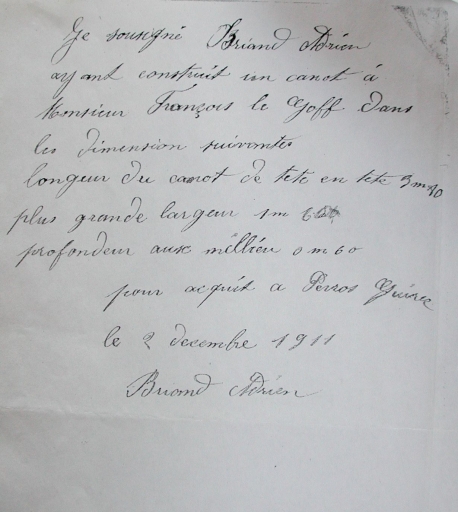 Je sousigné Briand Adrien
ayant construit un canot à
Monsieur François le Goff dans
les dimension suivantes
longeur du canot de tete en tete 3m
plus grande largeur 1m
profondeur aux mellieu 0m60
pour acquit a Perros Guirec
le 2 decembre 1911
Briand Adrien